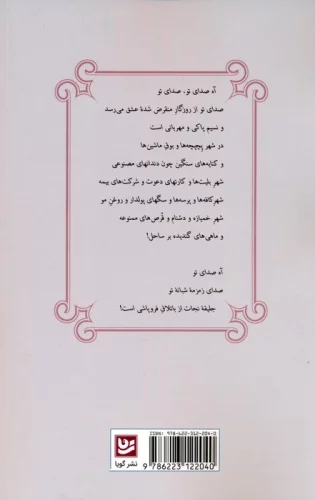 آه صدای تو، صدای تو
صدای تو از روزگارِ منقرض شدهٔ عشق می‌رسد
و نسیم پاکی و مهربانی است
در شهر پچپچه‌ها و بوقِ ماشین‌ها
و کنایه‌های سنگین چون دندانهای مصنوعی
شهر بلیت‌ها و کارتهای دعوت و شرکت‌های بیمه
شهر کافه‌ها و پرسه‌ها و سگهای پولدار و روغنِ مو
شهر خمیازه و دشنام و قُرص‌های ممنوعه
و ماهی‌های گندیده بر ساحل!
آه صدای تو
صدای زمزمهٔ شبانهٔ تو
جلیقهٔ نجات از باتلاقِ فروپاشی است!
ISBN: 978-622-312-204-0
9 786223 122040
نشر گویا